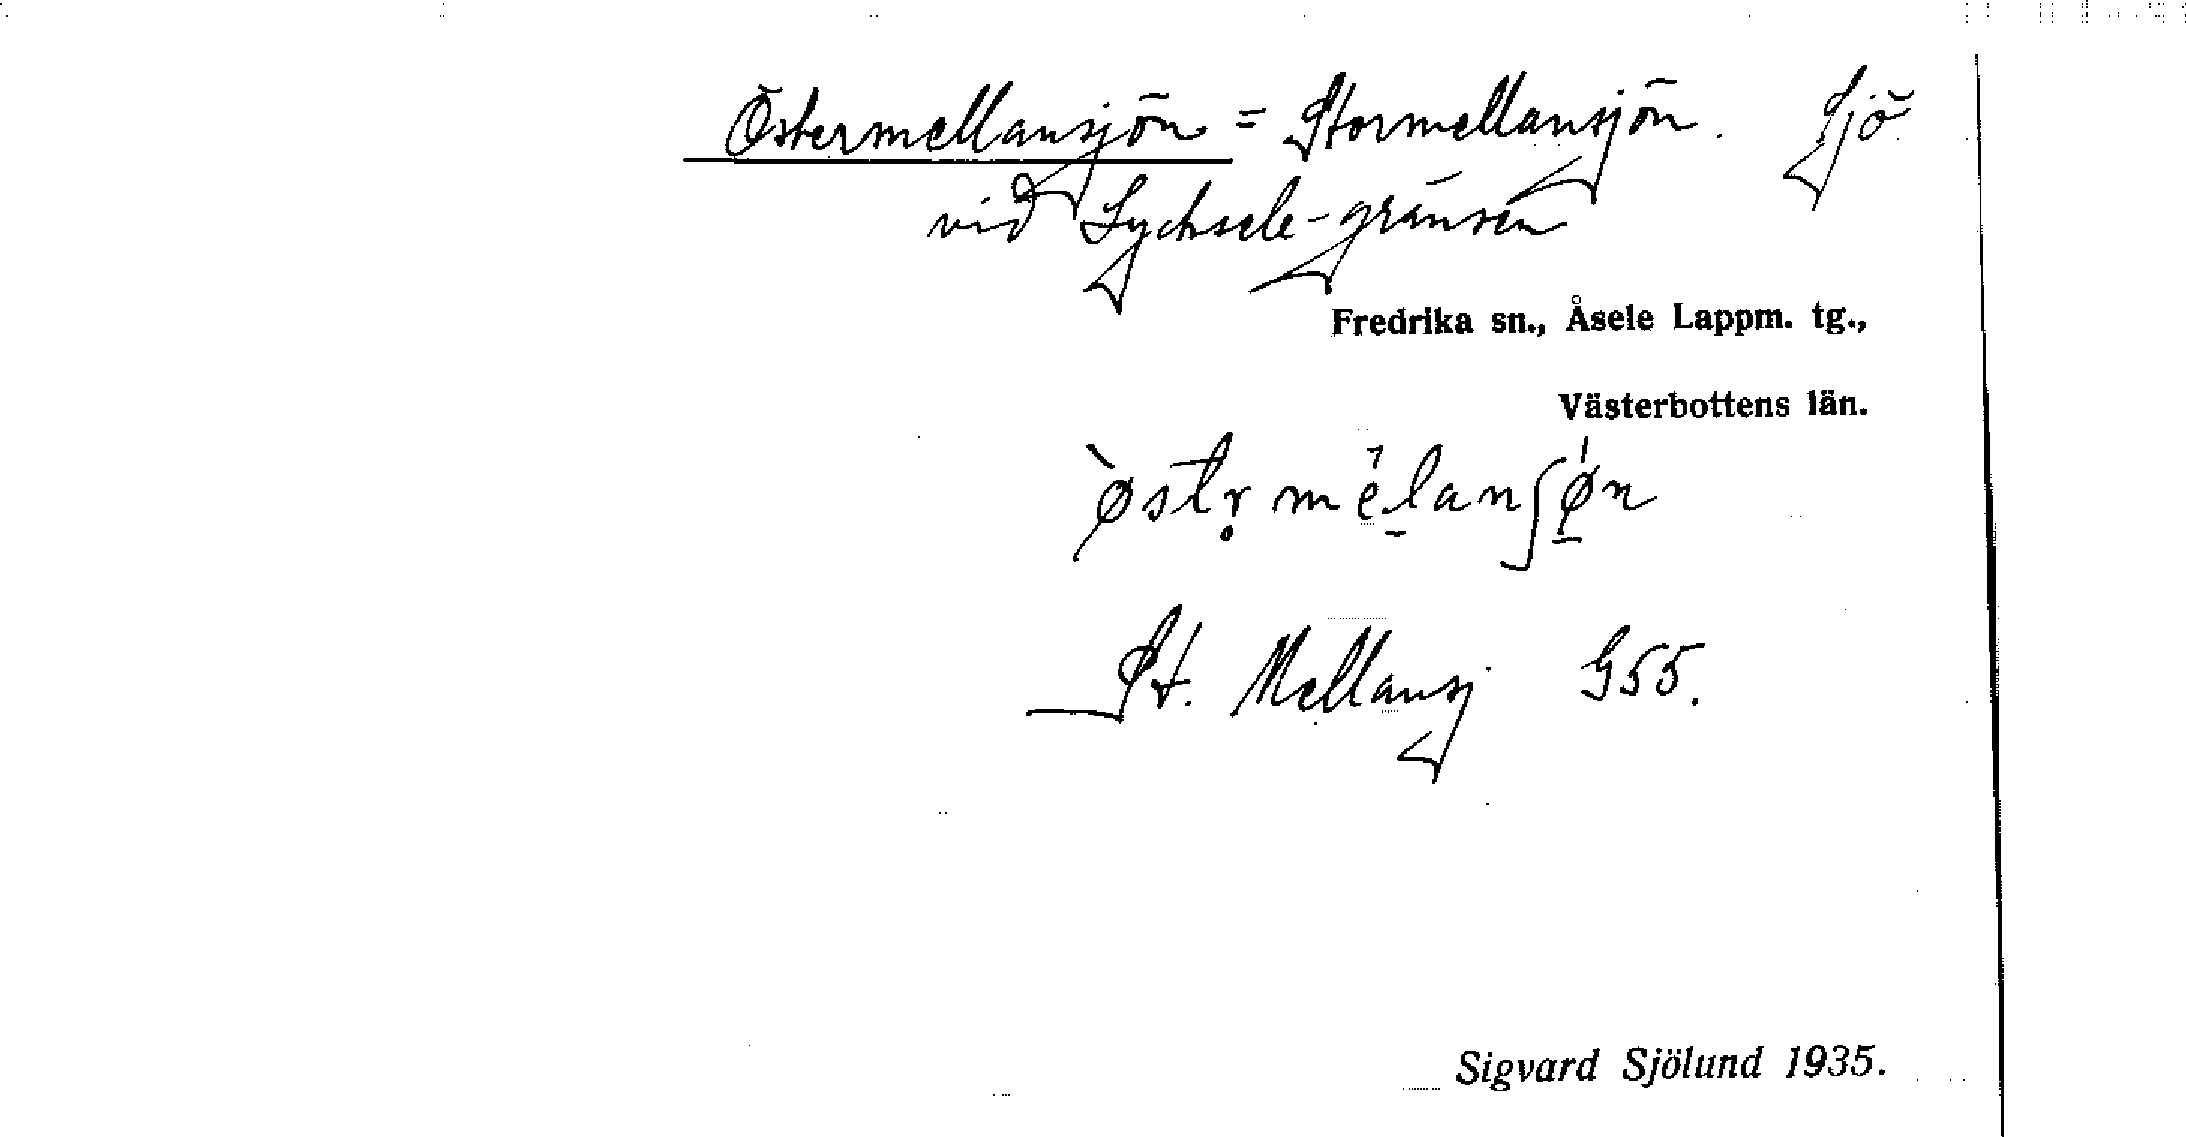 Östermellansjön = Stormellansjön. Sjö
vid Lycksele-gränsen
Fredrika sn., Åsele Lappm. tg.,
Västerbottens län.
ø̀str̥ mèlanʃøn
St. Mellansj G55.
Sigvard Sjölund 1935.